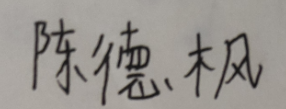 陈德枫